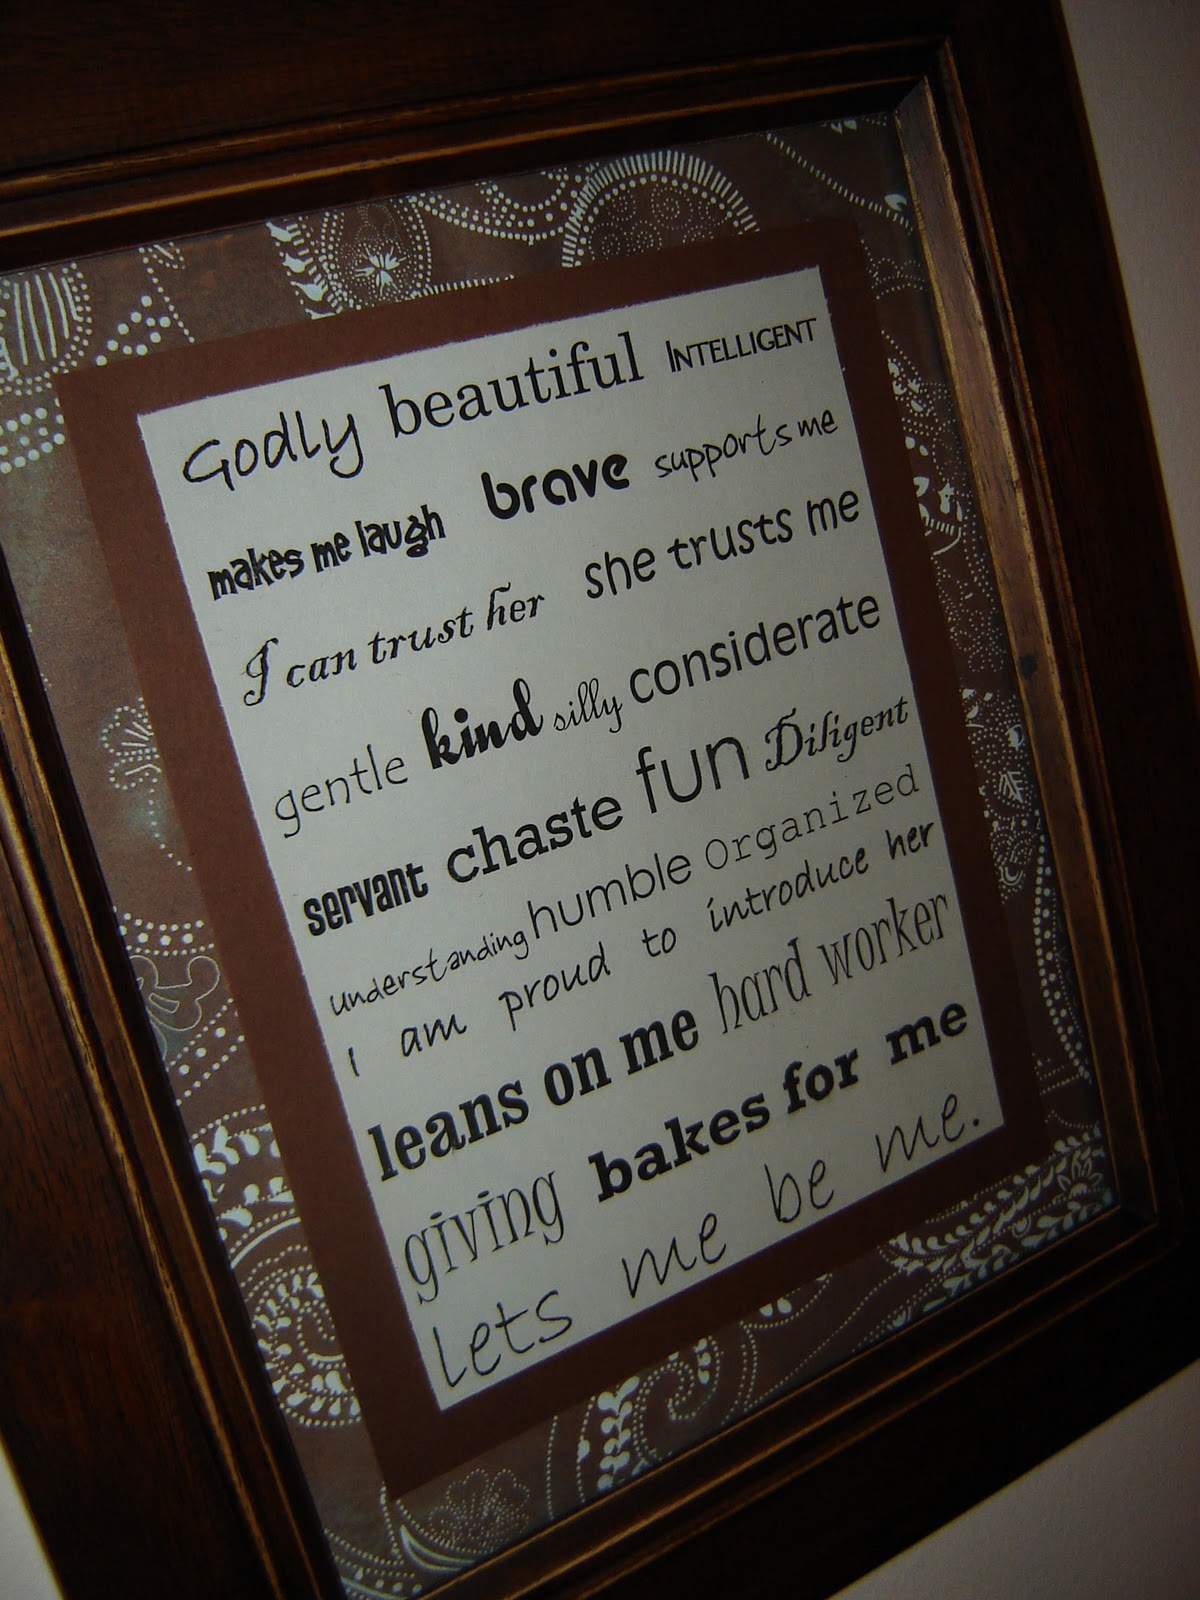 Godly beautiful INTELLIGENT
makes me laugh brave supports me
I can trust her she trusts me
gentle kind silly considerate
servant chaste fun Diligent
understanding humble Organized
I am proud to introduce her
leans on me hard worker
giving bakes for me
Lets me be me.